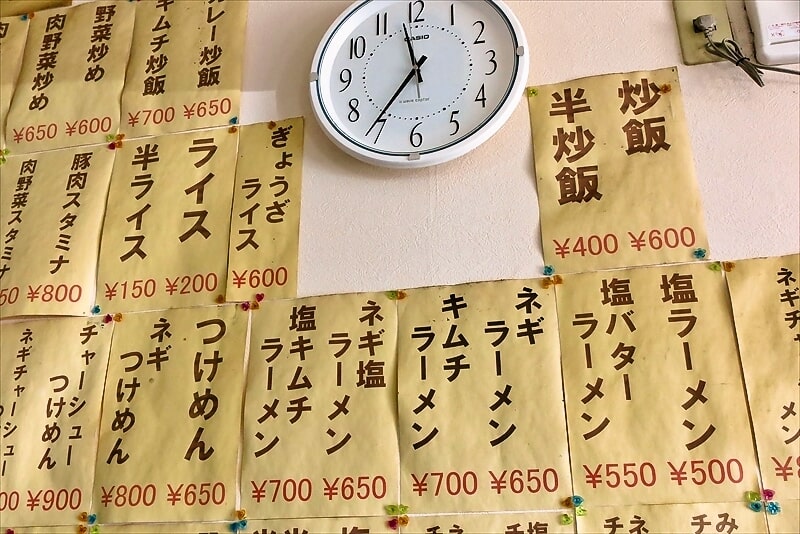 カレー炒飯
¥650
キムチ炒飯
¥700
野菜炒め
¥600
肉野菜炒め
¥650
12
1
2
3
4
5
6
7
8
9
10
11
CASIO
炒飯
¥600
半炒飯
¥400
ぎょうざ
ライス
¥600
ライス
¥200
半ライス
¥150
豚肉スタミナ
¥800
肉野菜スタミナ
50
塩ラーメン
¥500
塩バター
ラーメン
¥550
ネギ
ラーメン
¥650
キムチ
ラーメン
¥700
ネギ塩
ラーメン
¥650
塩キムチ
ラーメン
¥700
つけめん
¥650
ネギ
つけめん
¥800
チャーシュー
つけめん
¥900
ネギチャーシュー
00